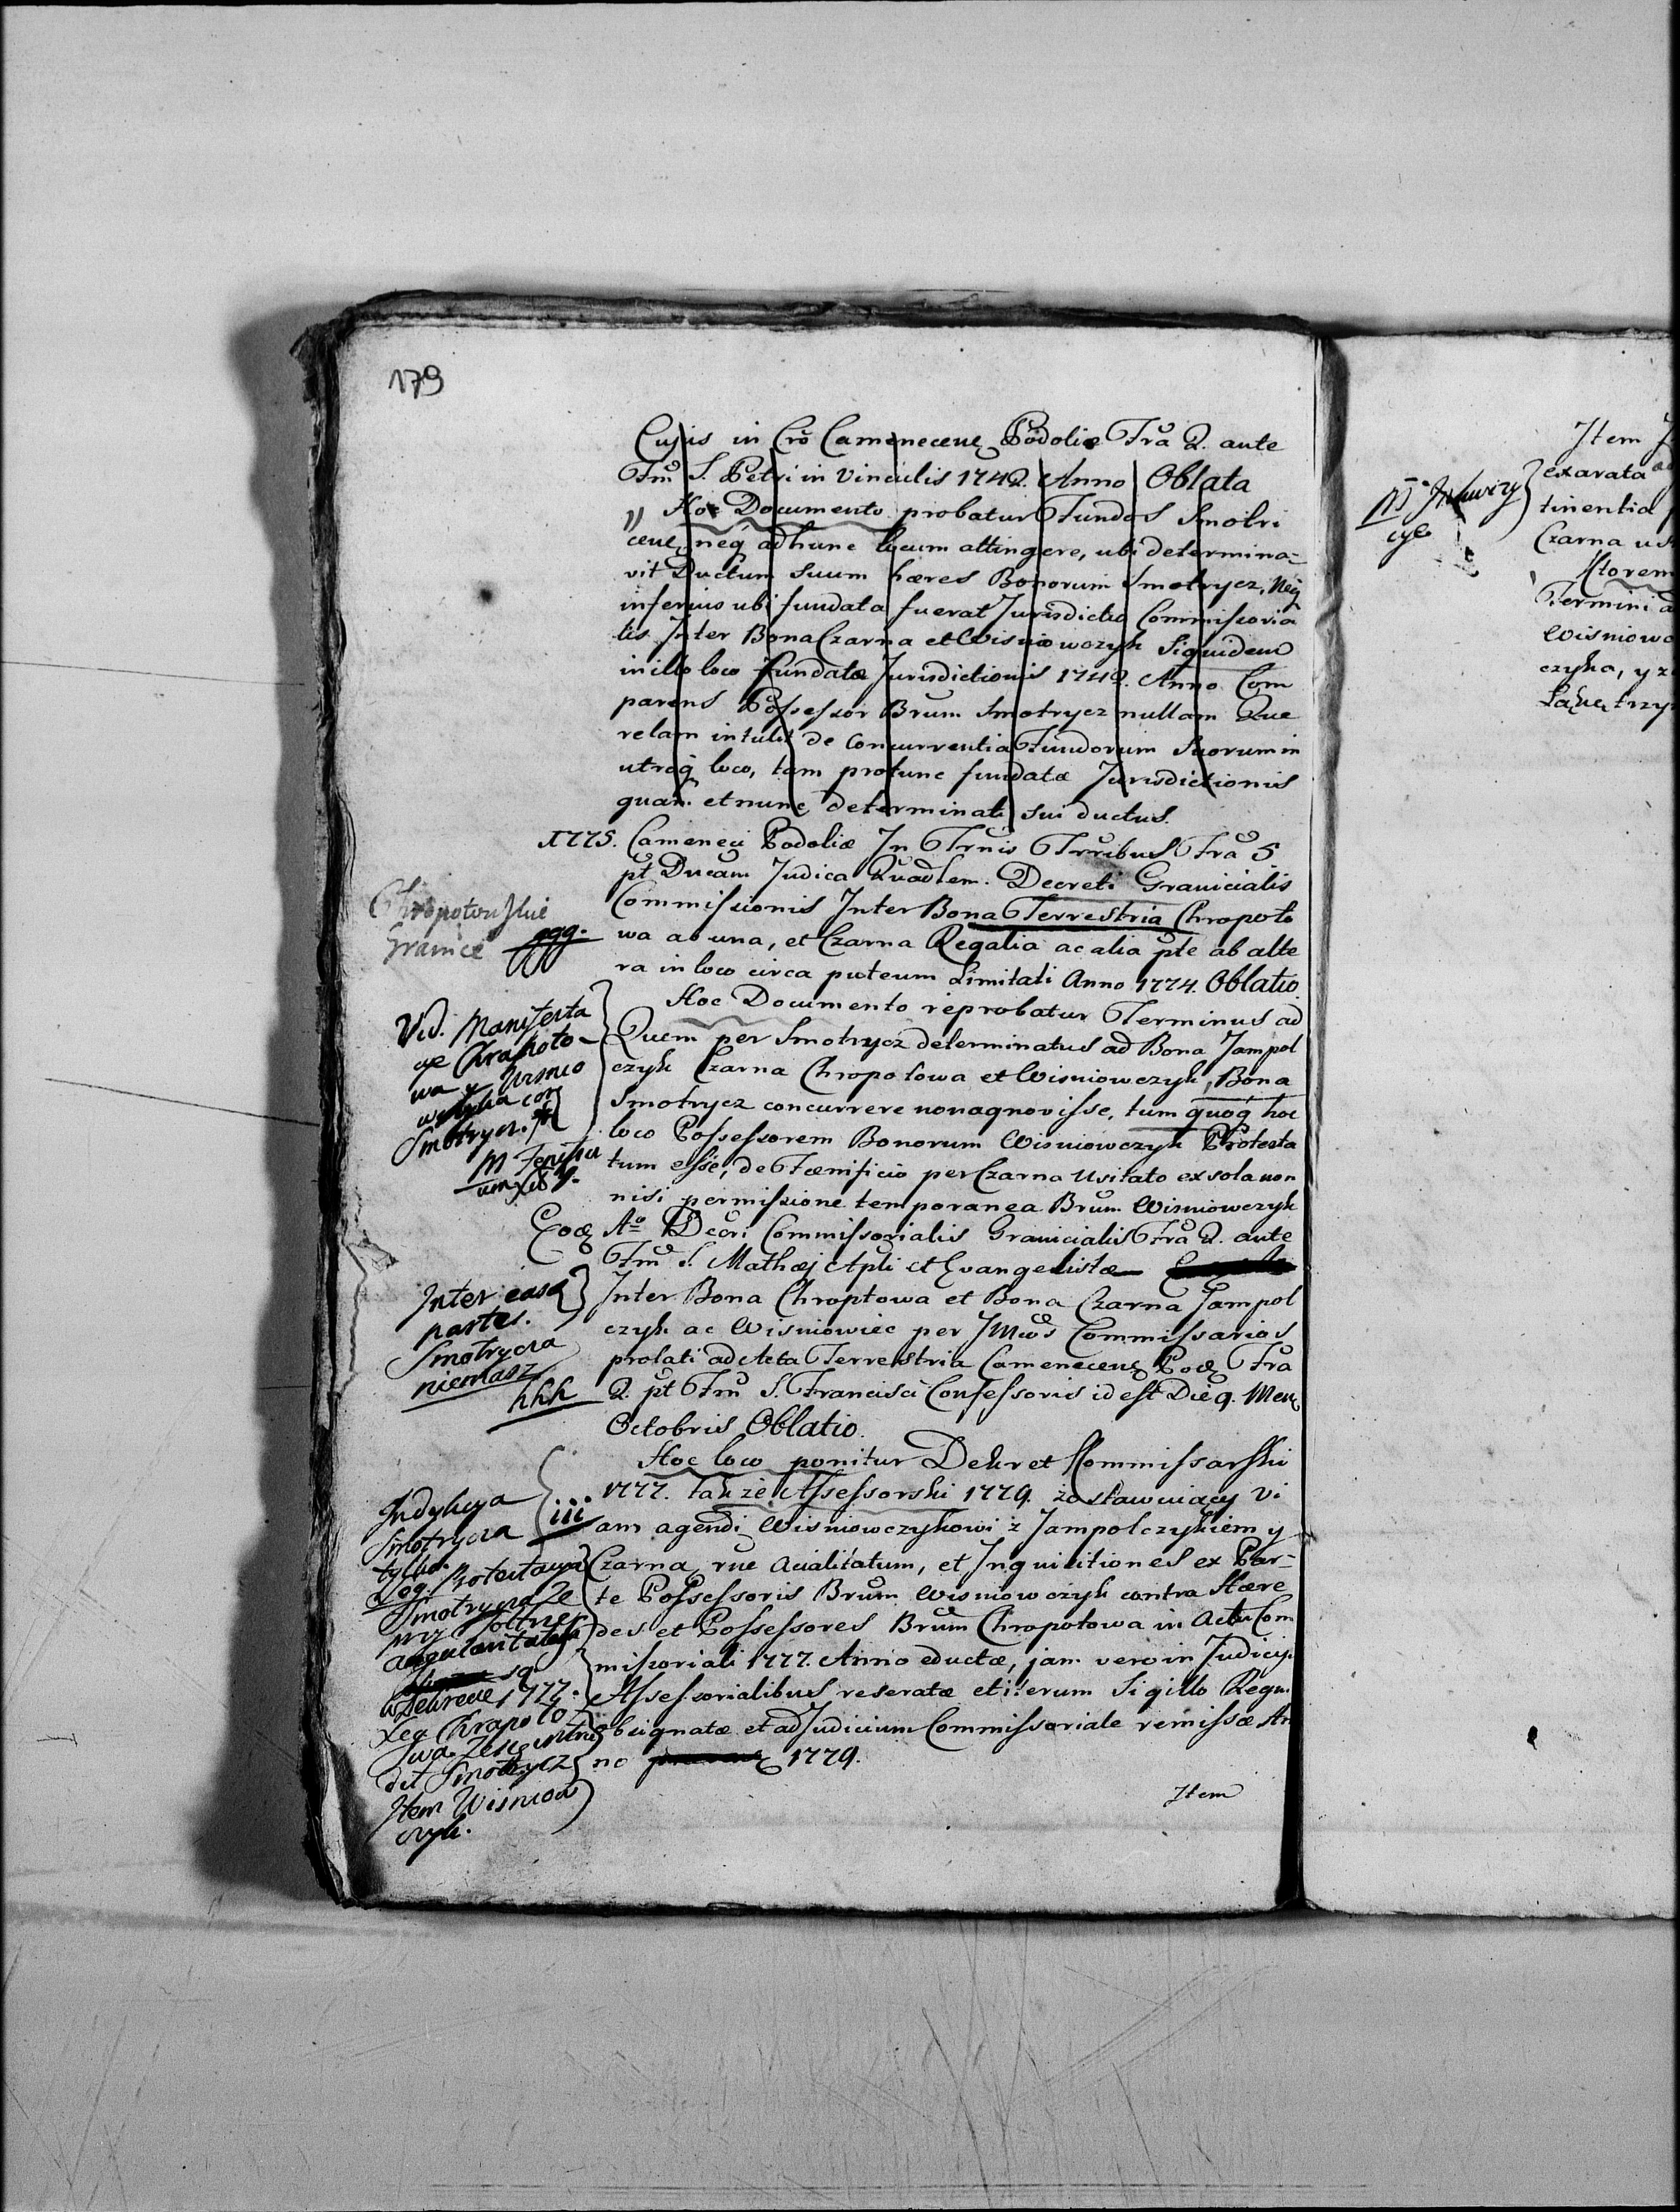 179
Cujus in Cro Camenecens Podoliæ Fra 2. ante
Fm S. Petri in Vinculis 1742. Anno Oblata
Hoc Documento probatur Fundos Smotri
cens neq adhunc locum attingere, ubi determina-
vit Ductum suum hæres Bonorum Smotrycz, Neq
inferius ubi fundata fuerat Jurisdictio Commissoria
lis Inter Bona Czarna et Wisniowczyk siquidem
in illo loco fundatæ Jurisdictionis 1742. Anno Com
parens Possessor Brum Smotrycz nullam Que
relam intulit de Concurrentia Fundorum Suorum in
utroq loco, tam protunc fundatæ Jurisdictionis
quam et nunc determinati sui ductus.
1775. Cameneci Podoliæ In Trnis Trribus Fra 5
pt Dnicam Judica Quadlem. Decreti Granicialis
Commissionis Inter Bona Terrestria Chropoto
wa ab una, et Czarna Regalia ac alia pte ab alte
ra in loco circa puteum Limitati Anno 1774. Oblatio
Hoc Documento reprobatur Terminus ad
Quem per Smotrycz determinatus ad Bona Jampol
czyk Czarna Chropotowa et Wisniowczyk, Bona
Smotrycz concurrere non agnovisse, tum quoq hoc
loco Possessorem Bonorum Wisniowczyk Protesta
tum esse, de Fænificio per Czarna Usitato ex sola non
nisi permissione temporanea Brum Wisniowczyk
Eod Ao Decri Commissorialis Granicialis Fra 2. ante
Fm S. Mathæj Apli et Evangelistæ
Inter Bona Chroptowa et Bona Czarna Jampol
czyk ac Wisniowiec per JMcos Commissarios
prolati ad Acta Terrestria Camenecens Pod Fra
2. pt Fm S. Francisci Confessoris id est Die 9. Mens
Octobris Oblatio.
Hoc loco ponitur Dekret Kommissarski
1777. także Assessorski 1779. zostawuiący Vi
am agendi Wisniowczykowi z Jampolczykiem y
Czarną rue acialitatum, et Inquisitiones ex Par-
te Possessoris Brum Wisniowczyk contra Hære
des et Possessores Brum Chropotowa in Actu Com
missoriali 1777. Anno eductæ, jam vero in Judicijs
Assessorialibus reseratæ et iterum Sigillo Regni
obsignatæ et ad Judicium Commissoriale remissæ An
no 1779.
Item
Chropotowskie
Granice
ggg.
Vid. Manifesta
cye Chrapoto-
wa y Wisnio
wczyka con
Smotrycz. *
Inter easd
partes.
Smotrycza
niemasz
hhh
Indykcya
Smotrycza
tylko.
iii
Smotrycz
Item Wisniow
czyk.
Item
exarata
tinentia
Czarna
Ktorem
Termini
Wisniow
czyka, y z
Łąkę trzy